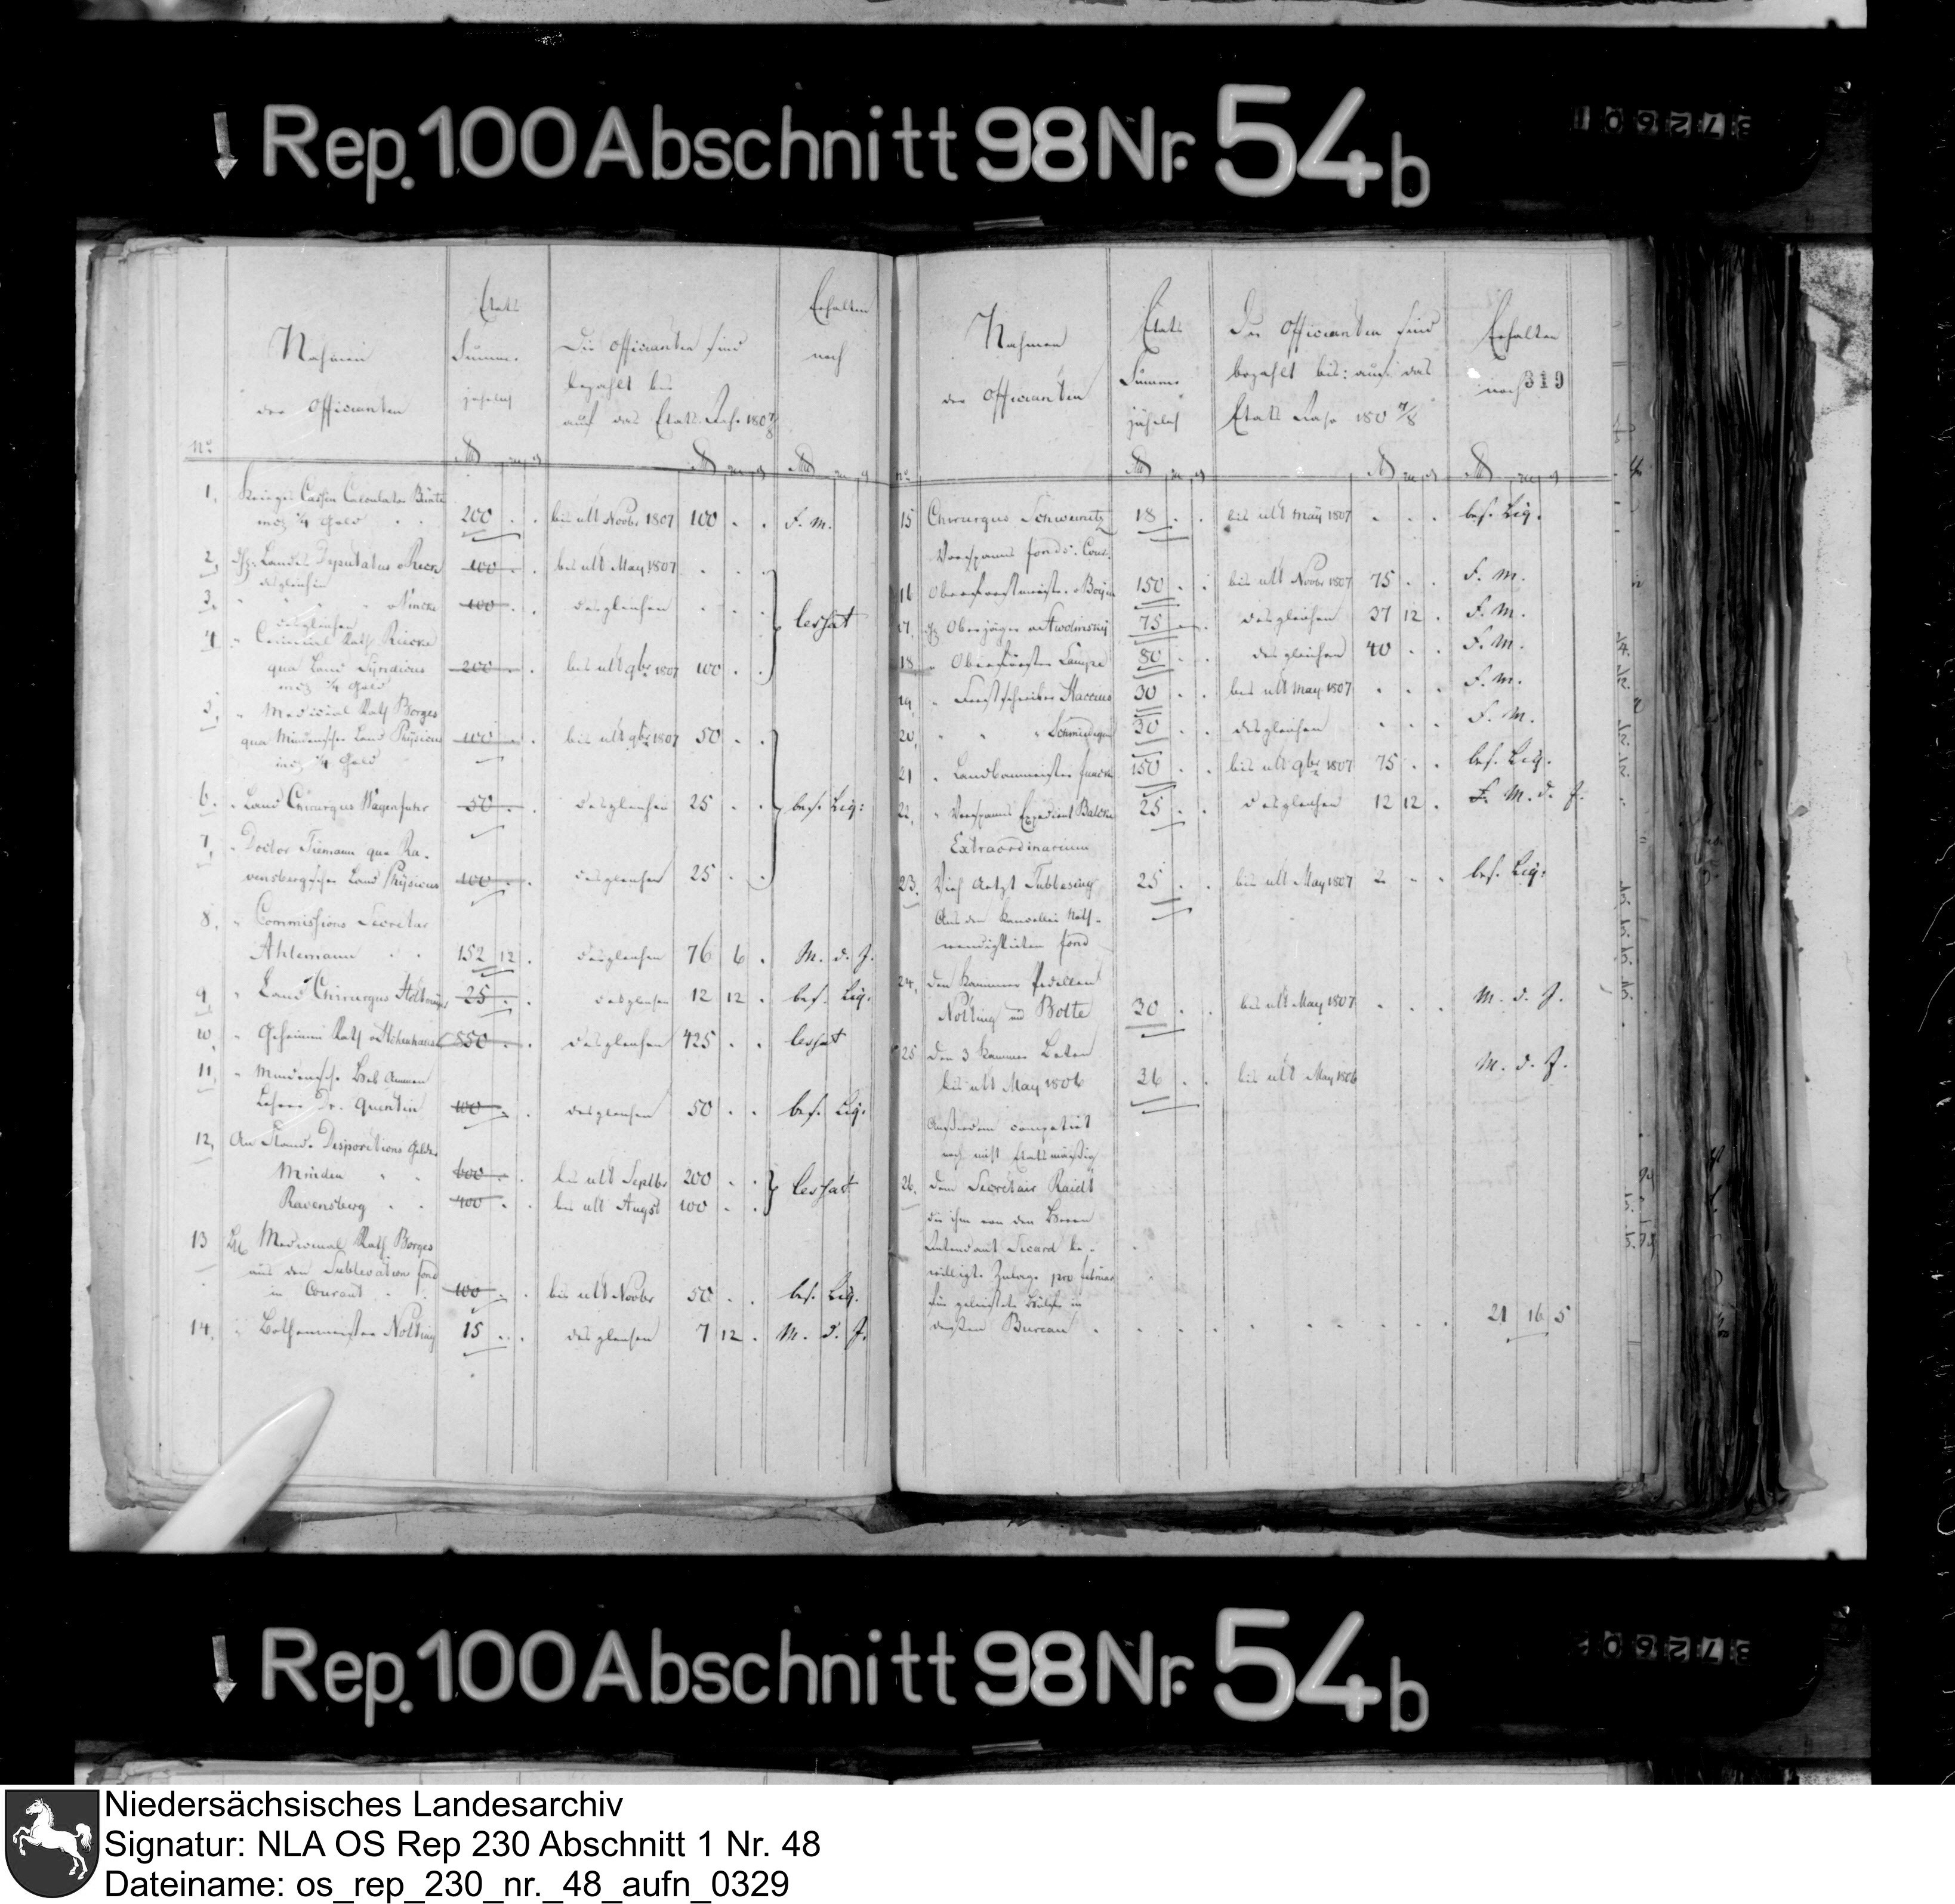 Rep. 100 Abschnitt 98 Nr. 54b
Nahmen
der Officianten
Etats
Summe
jährlich
Die Officianten sind
bezahlt bis
auf das Etats Jahr 1807/8
Erhalten
noch
No
1, Krieges Cassen Calculator
incl. 1/4 Gold 200 . . bis ult Novbr 1807 100 . . F. M.
2, Landes Deputatus 100 . . bis ult May 1807 . . .
desgleichen
3, 100 . . desgleichen . . . cessat
desgleichen
4, " Criminal Rath
qua Land Syndicus 200 . . bis ult 9br 1807 100 . .
incl. 1/4 Gold
5, " Medicinal Rath Borges
qua Mindenscher Land Physicus 100 . . bis ult 9br 1807 50 . .
incl. 1/4 Gold
6. " Land Chirurgus Wagenfuhr 50 . . desgleichen 25 . . bes. Liq:
7, " Doctor Tiemann qua Ra-
vensbergscher Land Physicus 100 . . desgleichen 25 . .
8, " Commissions Secretar
Ahlemann . . 152 12 . desgleichen 76 6 . M. d. J.
9, " Land Chirurgus 25 . . desgleichen 12 12 . bes. Liq.
10, " Geheimen Rath 850 . . desgleichen 425 . . cessat
11, " Mindensche Heb Ammen
Lehrer Dr. Quentin 100 . . desgleichen 50 . . bes. Liq.
12, An Stands Dispositions Gelder
Minden " . 600 . . bis ult Septbr 200 . . cessat
Ravensberg . . 400 . . bis ult Augst 100 . .
13 Medicinal Rath Borges
aus den Sublevations fond
in Courant . . 100 . . bis ult Novbr 50 . . bes. Liq.
14, " Bothenmeister Nolting 15 . . desgleichen 7 12 . M. d. J.
Nahmen
der Officianten
Etats
Summe
jährlich
Die Officianten sind
bezahlt bis: auf das
Etats Jahr 1807/8
Erhalten
noch
319
No
15 Chirurgus 18 . . bis ult May 1807 . . . bes. Liq.
Vorspanns fonds: Cour.
16 Oberforstmeister 150 . . bis ult Novbr 1807 75 . . F. M.
17, Oberjäger 75 . . desgleichen 37 12 . F. M.
18 " Oberförster Lampe 80 . . desgleichen 40 . . F. M.
19, " Forstschreiber Staccius 30 . . bis ult May 1807 . . . F. M.
20, " " " 30 . . desgleichen . . . F. M.
21 " Landbaumeister Funck 150 . . bis ult 9br 1807 75 . . bes. Liq.
22, " Vorspanns Expedient 25 . . desgleichen 12 12 . M. d. J.
Extraordinarium
23. Vieh Artzt 25 . . bis ult May 1807 2 . . bes. Liq:
Aus dem Kanzellei Noth-
wendigkeiten fond
24, den Kammer Pedellen
Nolting und Botte 30 . . bis ult May 1807 . . . M. d. J.
25 den 3 Kammer Boten
bis ult May 1806 36 . . bis ult May 1806 M. d. J.
Außerdem competirt
noch nicht Etatsmäßig
26. dem Secretair Raidt
die ihm von den Herrn
Intendant Sicard be-
willigte Zulage pro februar
für geleistete Hülfe in
dessen Bureau . . . . . . . . . 21 16 5
Rep. 100 Abschnitt 98 Nr. 54b
Niedersächsisches Landesarchiv
Signatur: NLA OS Rep 230 Abschnitt 1 Nr. 48
Dateiname: os_rep_230_nr._48_aufn_0329